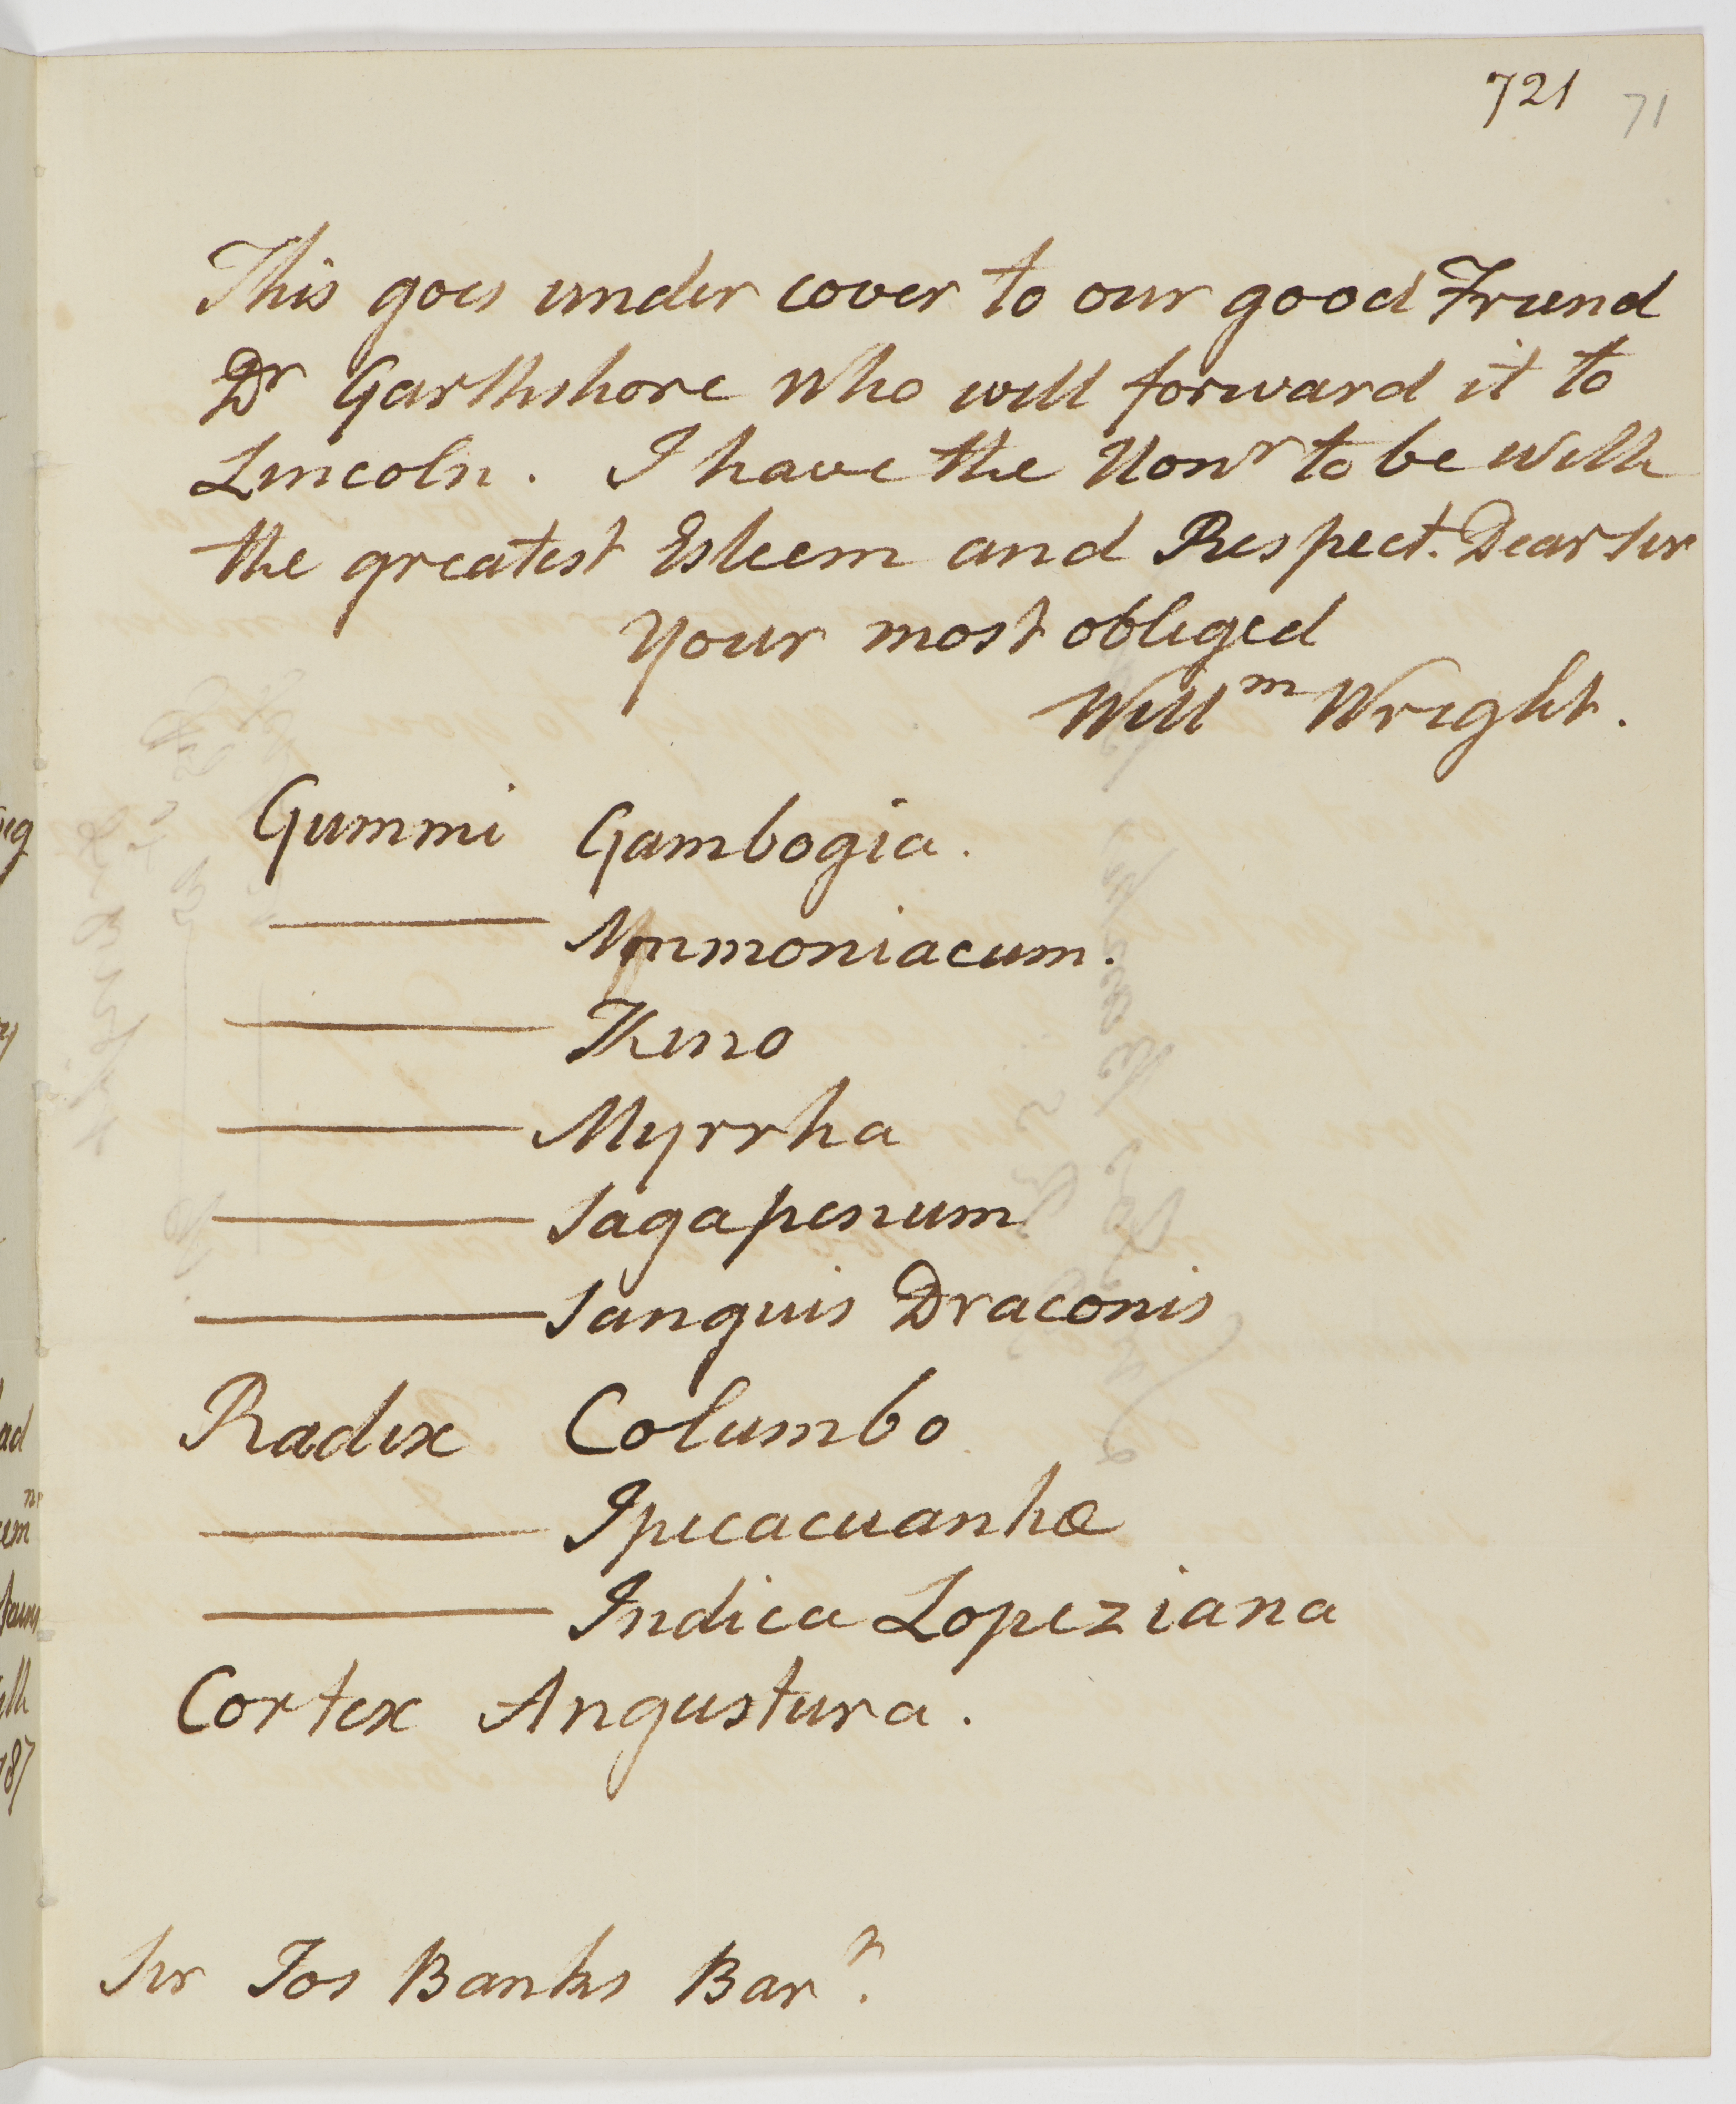 721 71
This goes under cover to our good Friend
Dr Garthshore who will forward it to
Lincoln. I have the Honr to be with
the greatest Esteem and Respect. Dear Sir
Your most obliged
Willm Wright.
Gummi Gambogia.
——— Ammoniacum.
——— Kino
——— Myrrha
——— Sagapenum
——— Sanguis Draconis
Radix Columbo
——— Ipecacuanhæ
——— Indica Lopeziana
Cortex Angustura.
Sir Jos Banks Bart.